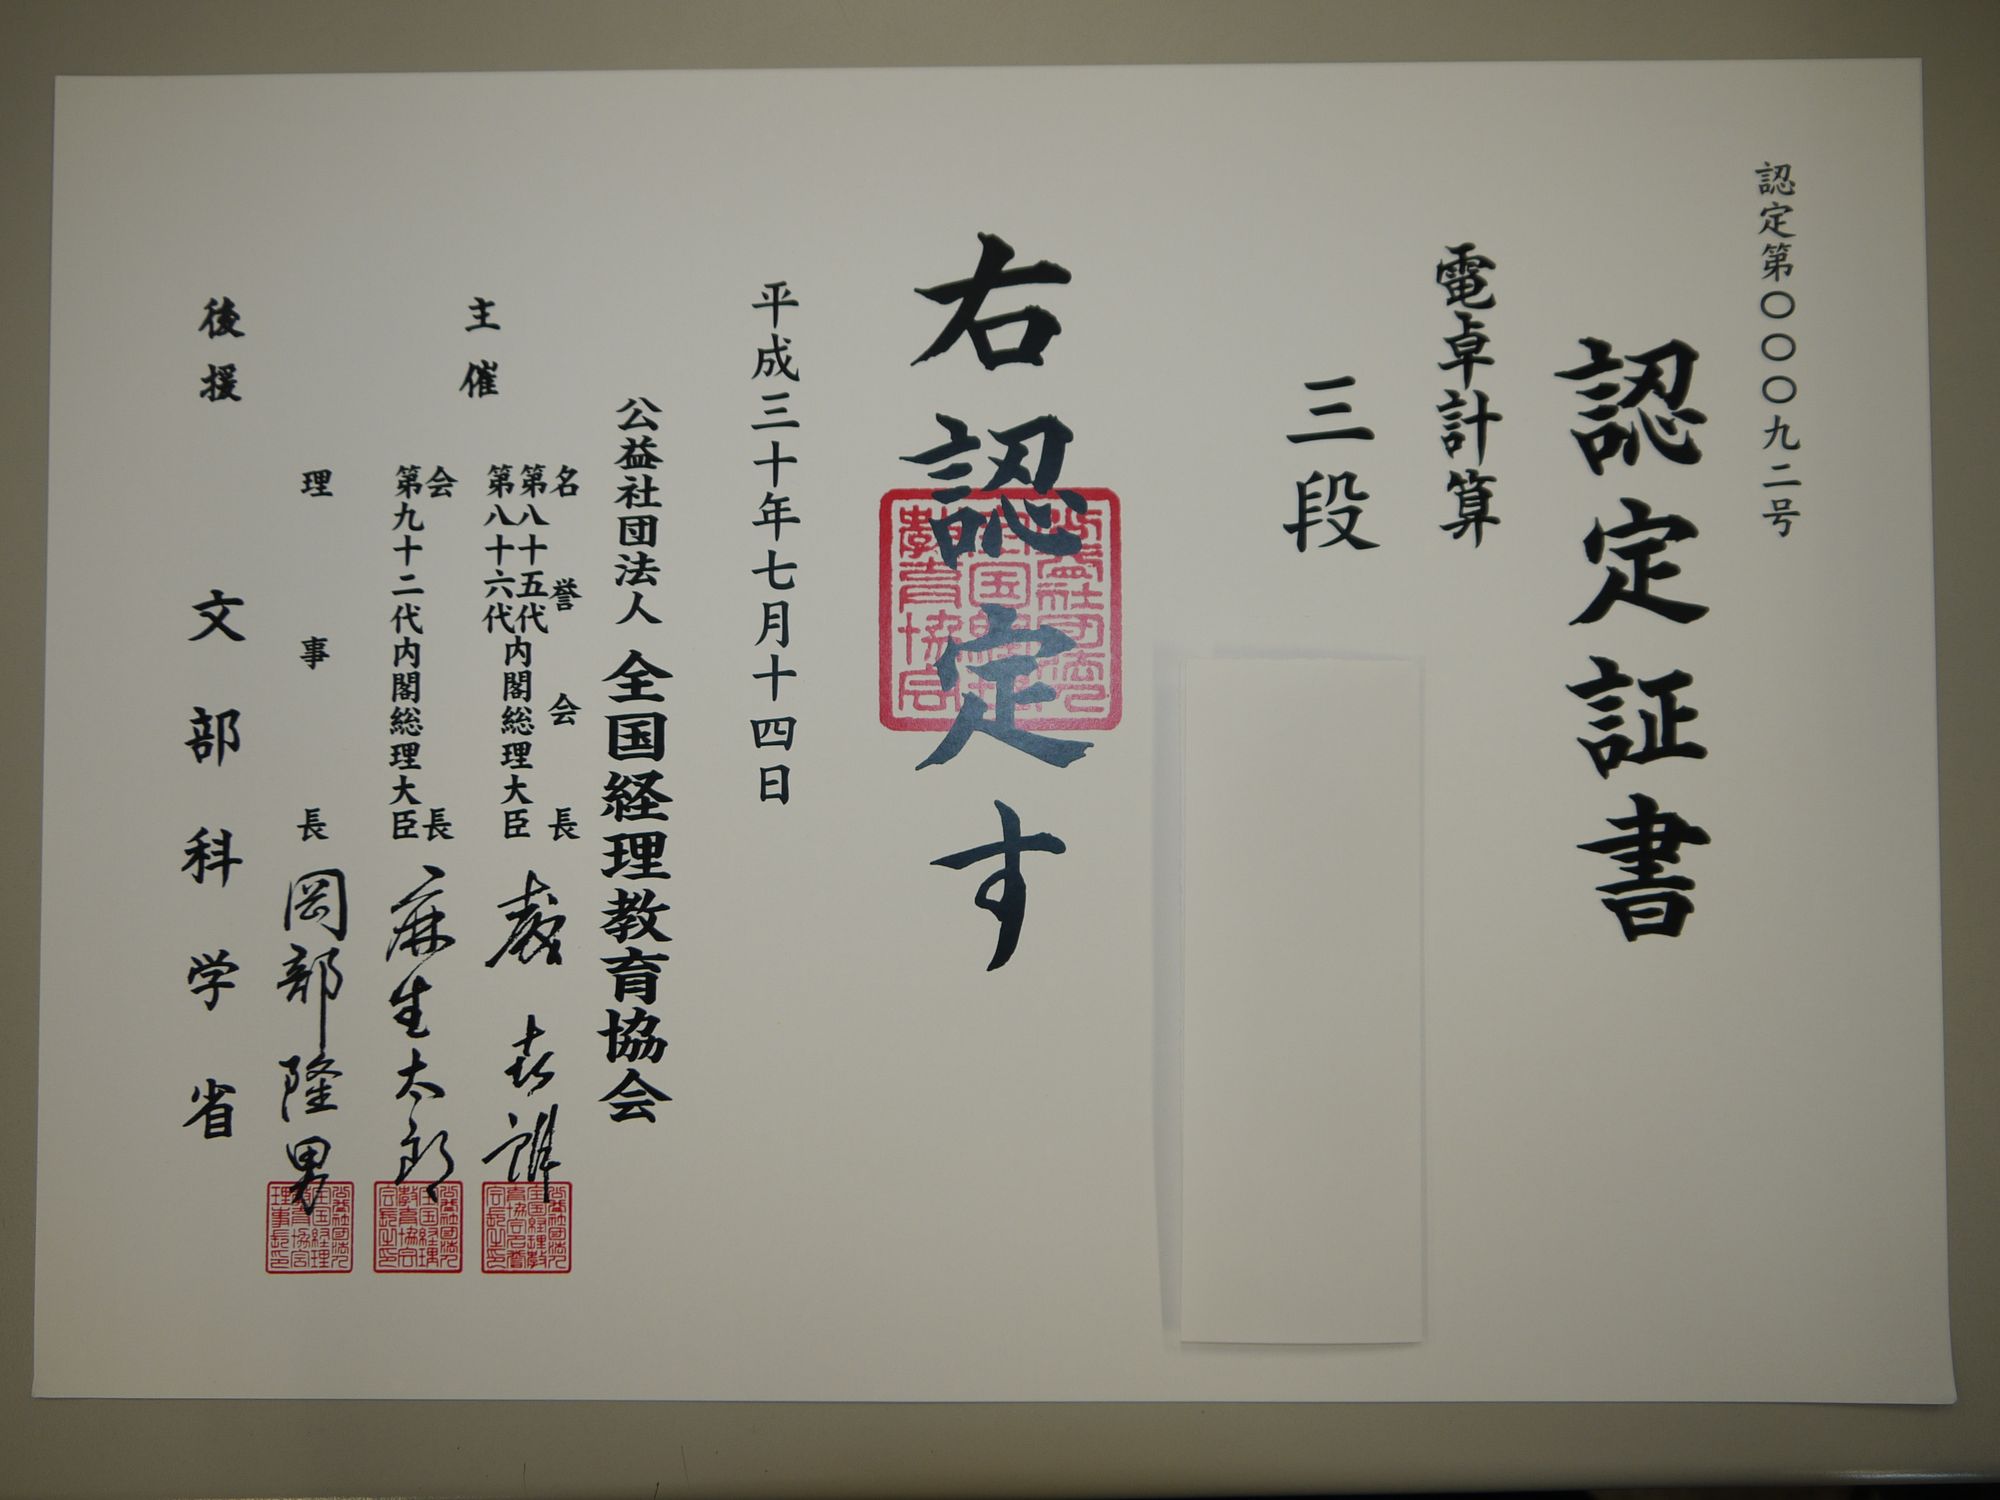 認定第〇〇〇九二号
認定証書
電卓計算
三段
右認定す
平成三十年七月十四日
公益社団法人 全国経理教育協会
主催
名誉会長
第八十五代
第八十六代
内閣総理大臣 森喜朗
会長
第九十二代内閣総理大臣 麻生太郎
理事長 岡部隆男
後援 文部科学省